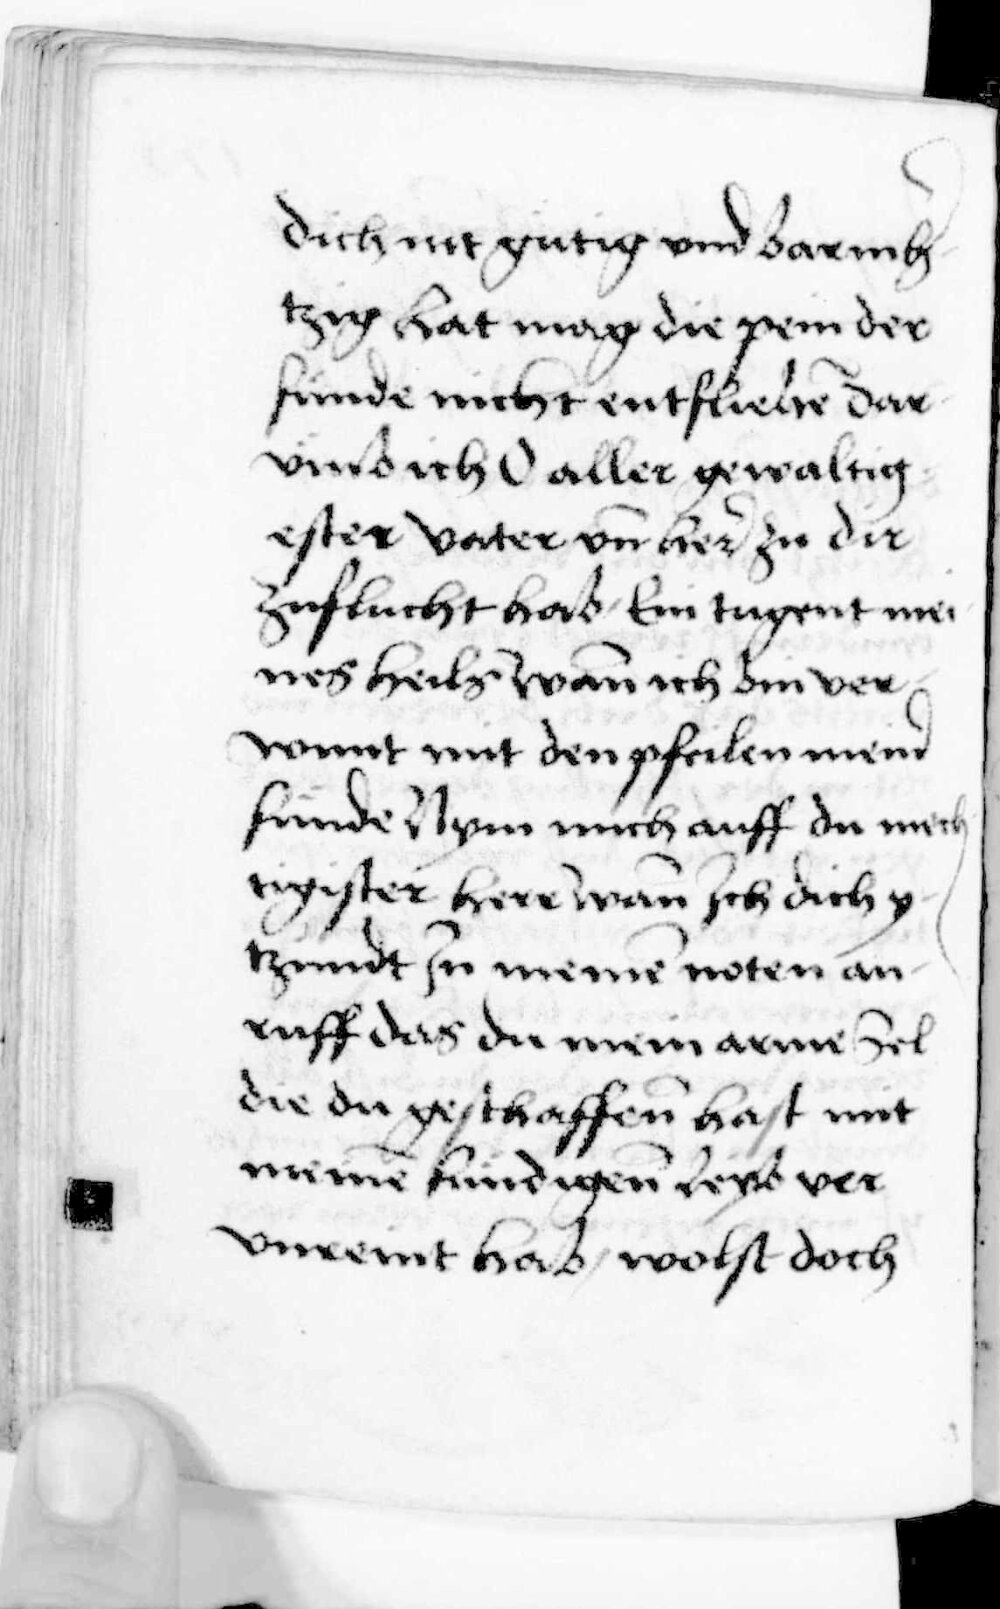 dich nit gütig vnd barmh᷑-
tzig hat mag die pein der
sünde nicht entfliehē dar-
vmb ich O aller gewaltig-
ester Vater vn̄ her᷑ zu dir
zuflucht hab / Ein tugent mei-
nes heils Wan̄ ich bin ver-
wunt mit den pfeilen mein᷑
sünde Nym mich auff du mech-
tigister herr wan̄ Ich dich y-
tzundt In meinē noten an-
ruff das du mein arme Sel
die du geschaffen̄ hast mit
meinē sündigen̄ leyb ver
vnreint hab / wolst doch